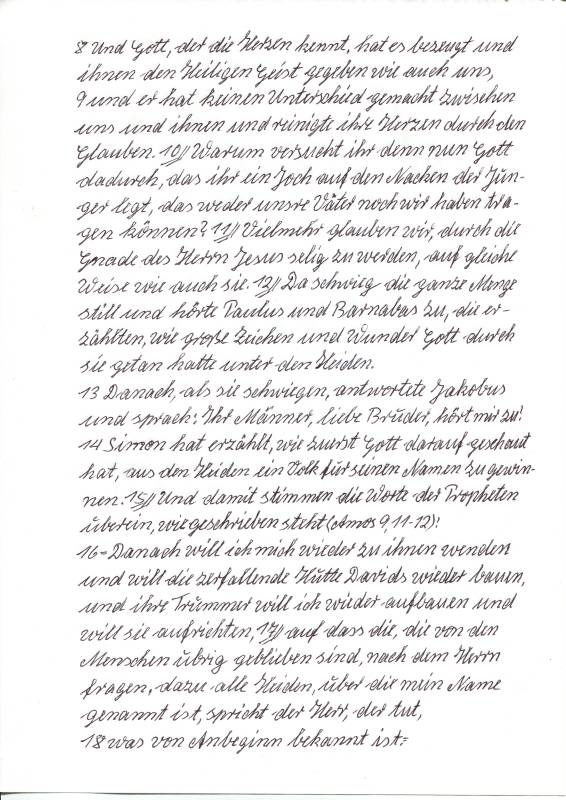 8 Und Gott, der die Herzen kennt, hat es bezeugt und
ihnen den Heiligen Geist gegeben wie auch uns,
9 und er hat keinen Unterschied gemacht zwischen
uns und ihnen und reinigte ihre Herzen durch den
Glauben. 10// Warum versucht ihr denn nun Gott
dadurch, das ihr ein Joch auf den Nacken der Jün-
ger legt, das weder unsre Väter noch wir haben tra-
gen können? 11// Vielmehr glauben wir, durch die
Gnade des Herrn Jesus selig zu werden, auf gleiche
Weise wie auch sie. 12// Da schwieg die ganze Menge
still und hörte Paulus und Barnabas zu, die er-
zählten, wie große Zeichen und Wunder Gott durch
sie getan hatte unter den Heiden.
13 Danach, als sie schwiegen, antwortete Jakobus
und sprach: Ihr Männer, liebe Brüder, hört mir zu!
14 Simon hat erzählt, wie zuerst Gott darauf geschaut
hat, aus den Heiden ein Volk für seinen Namen zu gewin-
nen. 15// Und damit stimmen die Worte der Propheten
überein, wie geschrieben steht (Amos 9, 11-12):
16 =Danach will ich mich wieder zu ihnen wenden
und will die zerfallende Hütte Davids wieder bauen,
und ihre Trümmer will ich wieder aufbauen und
will sie aufrichten, 17// auf dass die, die von den
Menschen übrig geblieben sind, nach dem Herrn
fragen, dazu alle Heiden, über die mein Name
genannt ist, spricht der Herr, der tut,
18 was von Anbeginn bekannt ist.=